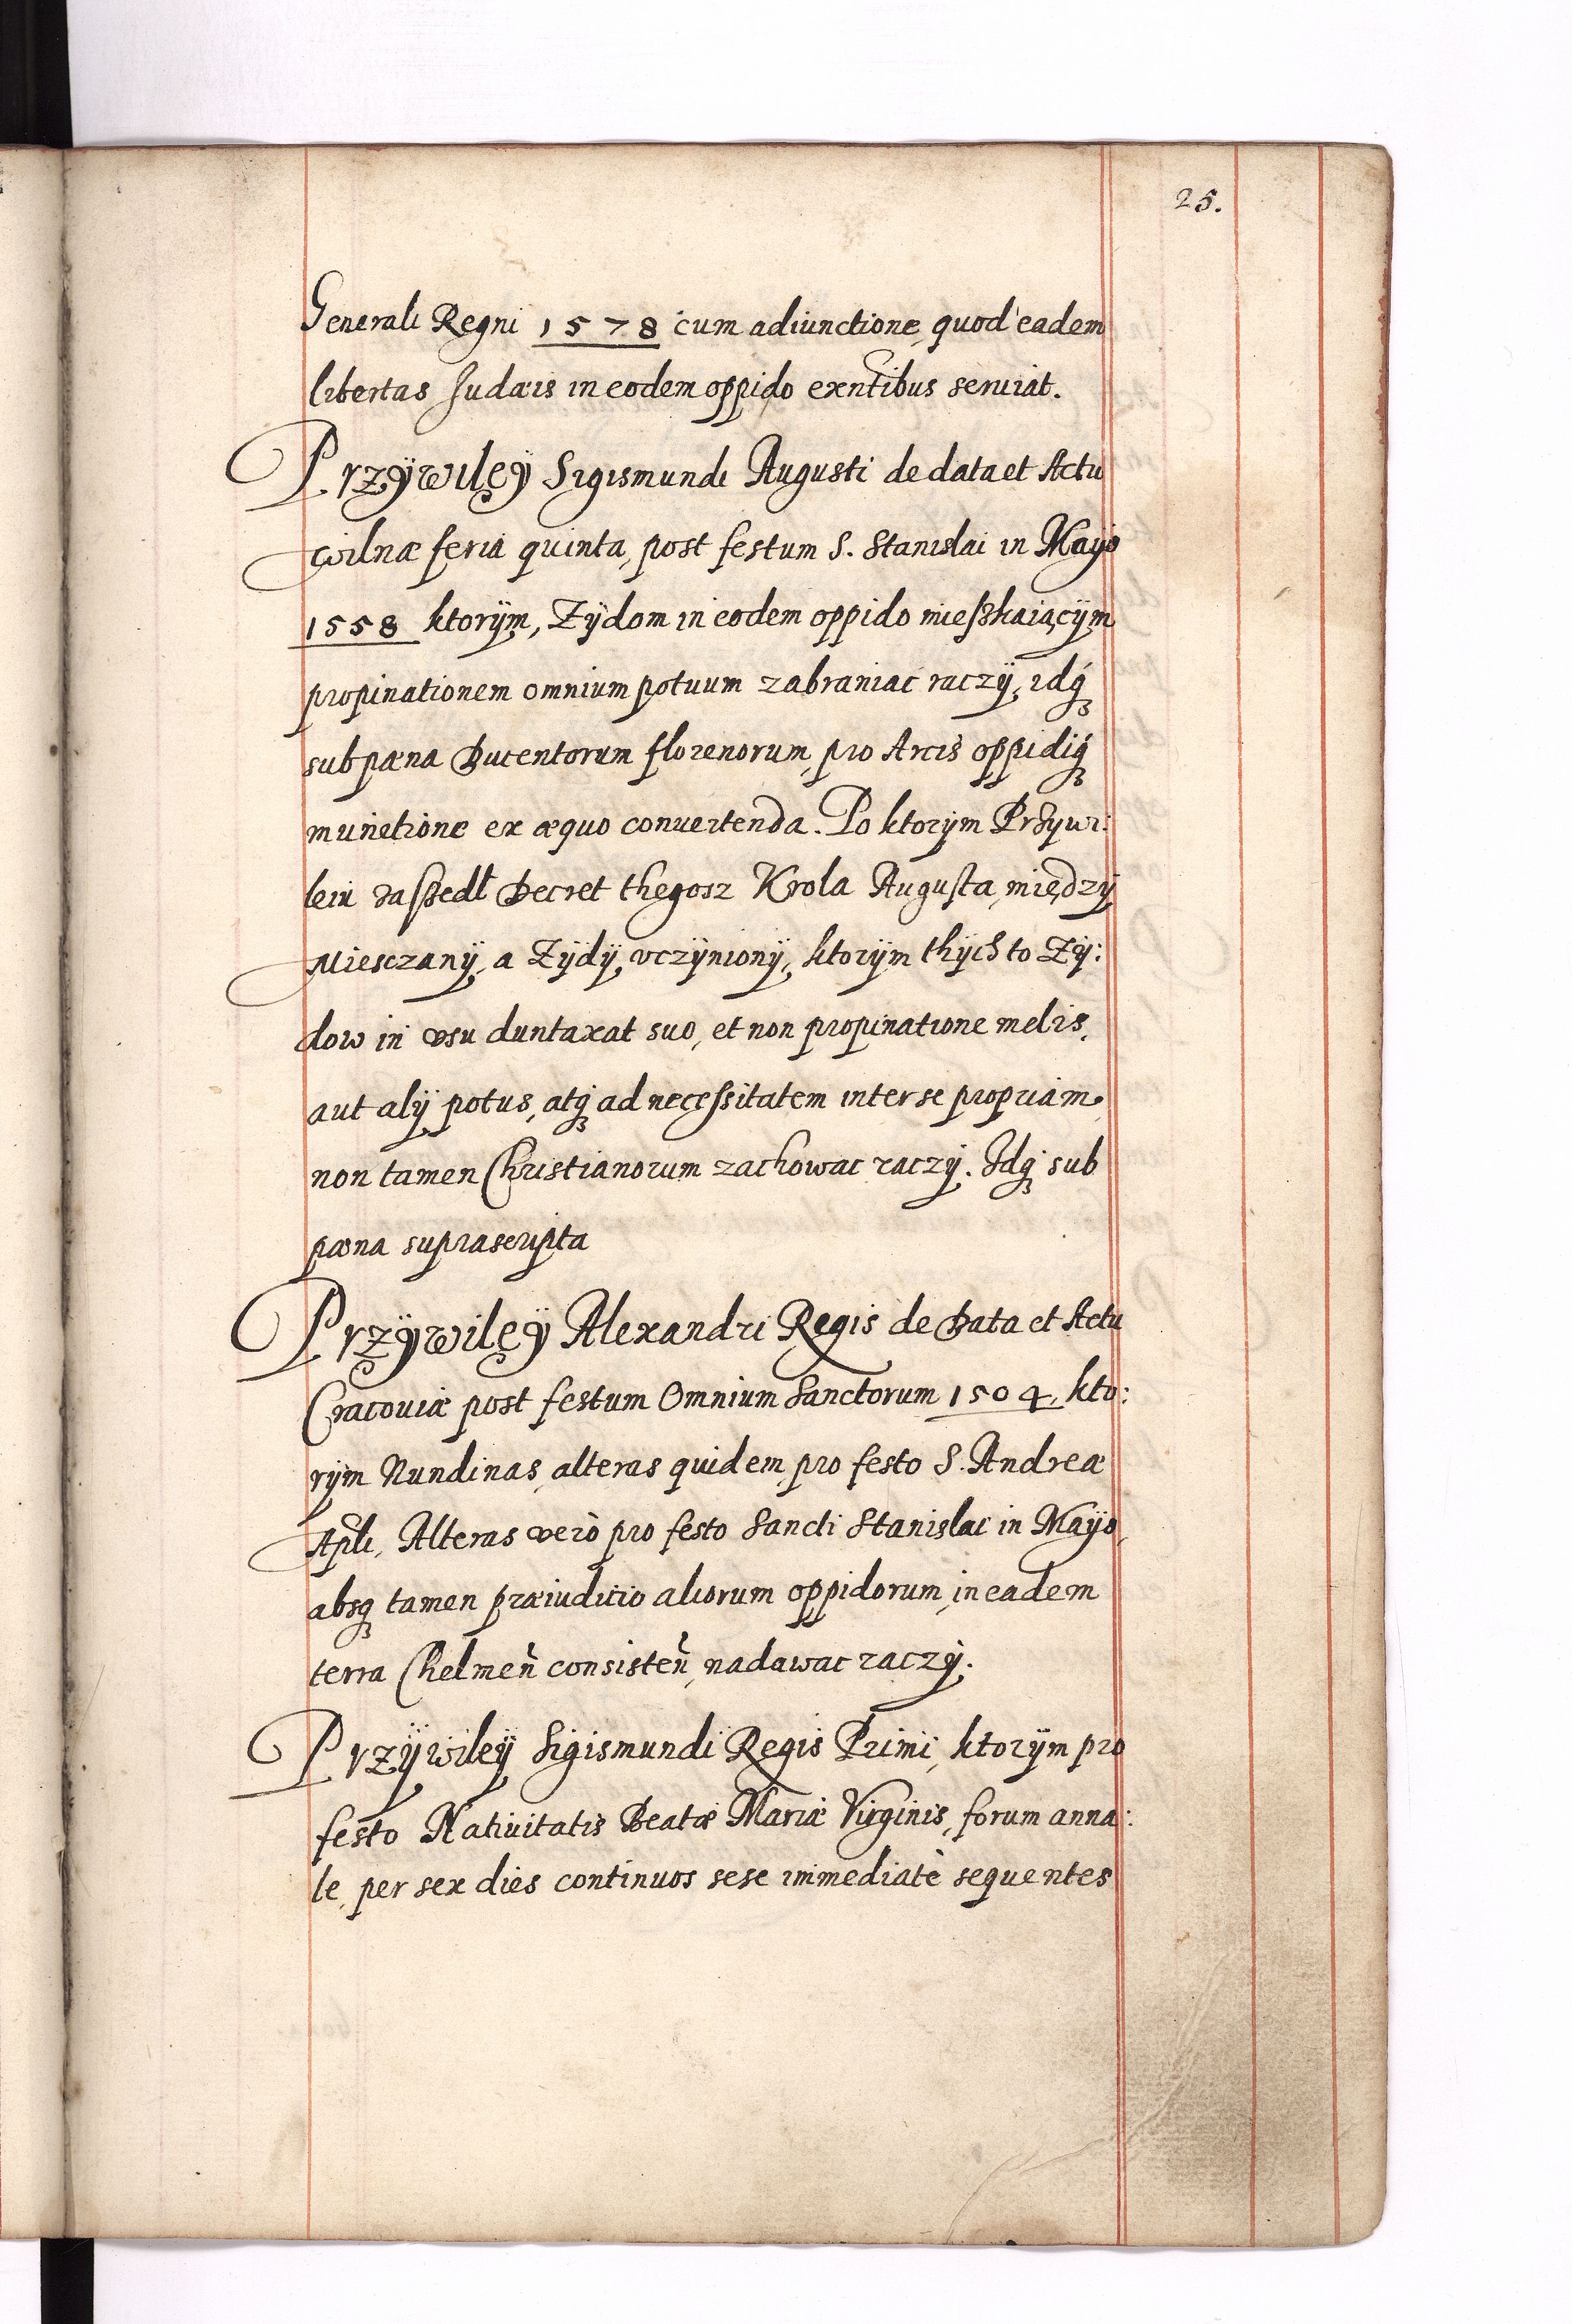 25.
Generali Regni 1578 cum adiunctione, quod eadem
libertas Judæis in eodem oppido exñtibus seruiat.
Przÿwileÿ Sigismundi Augusti de data et Actu
Wilnæ feria quinta, post festum S. Stanislai in Mayo
1558 ktorÿm, Zÿdom in eodem oppido mieszkaiącÿm
propinationem omnium potuum zabraniac raczÿ, idq́ꝫ
sub pæna Ducentorum florenorum, pro Arcis oppidiq́ꝫ
munitione ex æquo conuertenda. Po ktorÿm Przywi:
leiu zaszedł Decret thegosz Krola Augusta, międzÿ
Miesczanÿ, a Zÿdÿ, vczÿnionÿ, ktorÿm thÿch to Zÿ:
dow in vsu duntaxat suo, et non propinatione melis,
aut alÿ potus, atqꝫ ad necessitatem inter se propriam,
non tamen Christianorum zachowac raczÿ. Idqꝫ sub
pæna suprascripta
Przÿwileÿ Alexandri Regis de Data et Actu
Cracouiæ post festum Omnium Sanctorum 1504, kto:
rÿm Nundinas, alteras quidem, pro festo S. Andreæ
Apli, Alteras verò pro festo Sancti Stanislai in Maÿo,
absqꝫ tamen præiuditio aliorum oppidorum, in eadem
terra Chelmeñ consisteñ, nadawac raczÿ.
Przÿwileÿ Sigismundi Regis Primi, ktorÿm pro
festo Natiuitatis Beatæ Mariæ Virginis, forum anna:
le, per sex dies continuos sese immediatè sequentes